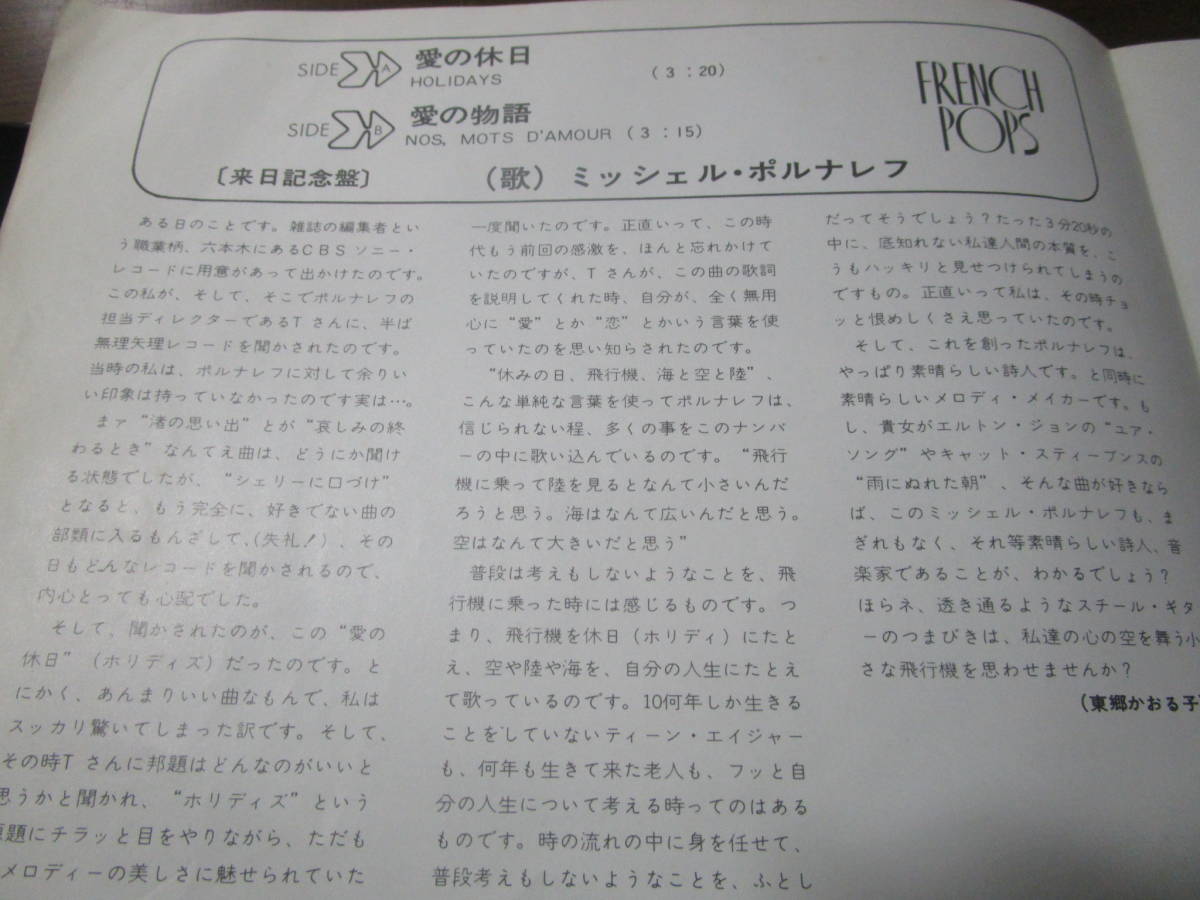 SIDE A 愛の休日
HOLIDAYS (3:20)
SIDE B 愛の物語
NOS, MOTS D'AMOUR (3:15)
FRENCH
POPS
〔来日記念盤〕 (歌) ミッシェル・ポルナレフ
ある日のことです。雑誌の編集者とい
う職業柄、六本木にあるCBSソニー・
レコードに用意があって出かけたのです。
この私が、そして、そこでポルナレフの
担当ディレクターであるTさんに、半ば
無理矢理レコードを聞かされたのです。
当時の私は、ポルナレフに対して余りい
い印象は持っていなかったのです実は…。
まァ“渚の思い出”とが“哀しみの終
わるとき”なんてえ曲は、どうにか聞け
る状態でしたが、“シェリーに口づけ”
となると、もう完全に、好きでない曲の
部類に入るもんざして、(失礼!)、その
日もどんなレコードを聞かされるので、
内心とっても心配でした。
そして、聞かされたのが、この“愛の
休日”(ホリディズ)だったのです。と
にかく、あんまりいい曲なもんで、私は
スッカリ驚いてしまった訳です。そして、
その時Tさんに邦題はどんなのがいいと
思うかと聞かれ、“ホリディズ”という
原題にチラッと目をやりながら、ただも
メロディーの美しさに魅せられていた
一度聞いたのです。正直いって、この時
代もう前回の感激を、ほんと忘れかけて
いたのですが、Tさんが、この曲の歌詞
を説明してくれた時、自分が、全く無用
心に“愛”とか“恋”とかいう言葉を使
っていたのを思い知らされたのです。
“休みの日、飛行機、海と空と陸”、
こんな単純な言葉を使ってポルナレフは、
信じられない程、多くの事をこのナンバ
ーの中に歌い込んでいるのです。“飛行
機に乗って陸を見るとなんて小さいんだ
ろうと思う。海はなんて広いんだと思う。
空はなんて大きいだと思う”
普段は考えもしないようなことを、飛
行機に乗った時には感じるものです。つ
まり、飛行機を休日(ホリディ)にたと
え、空や陸や海を、自分の人生にたとえ
て歌っているのです。10何年しか生きる
ことをしていないティーン・エイジャー
も、何年も生きて来た老人も、フッと自
分の人生について考える時ってのはある
ものです。時の流れの中に身を任せて、
普段考えもしないようなことを、ふとし
だってそうでしょう?たった3分20秒の
中に、底知れない私達人間の本質を、こ
うもハッキリと見せつけられてしまうの
ですもの。正直いって私は、その時チョ
ッと恨めしくさえ思っていたのです。
そして、これを創ったポルナレフは、
やっぱり素晴らしい詩人です。と同時に
素晴らしいメロディ・メイカーです。も
し、貴女がエルトン・ジョンの“ユア・
ソング”やキャット・スティーブンスの
“雨にぬれた朝”、そんな曲が好きなら
ば、このミッシェル・ポルナレフも、ま
ぎれもなく、それ等素晴らしい詩人、音
楽家であることが、わかるでしょう?
ほらネ、透き通るようなスチール・ギタ
ーのつまびきは、私達の心の空を舞う小
さな飛行機を思わせませんか?
(東郷かおる子)